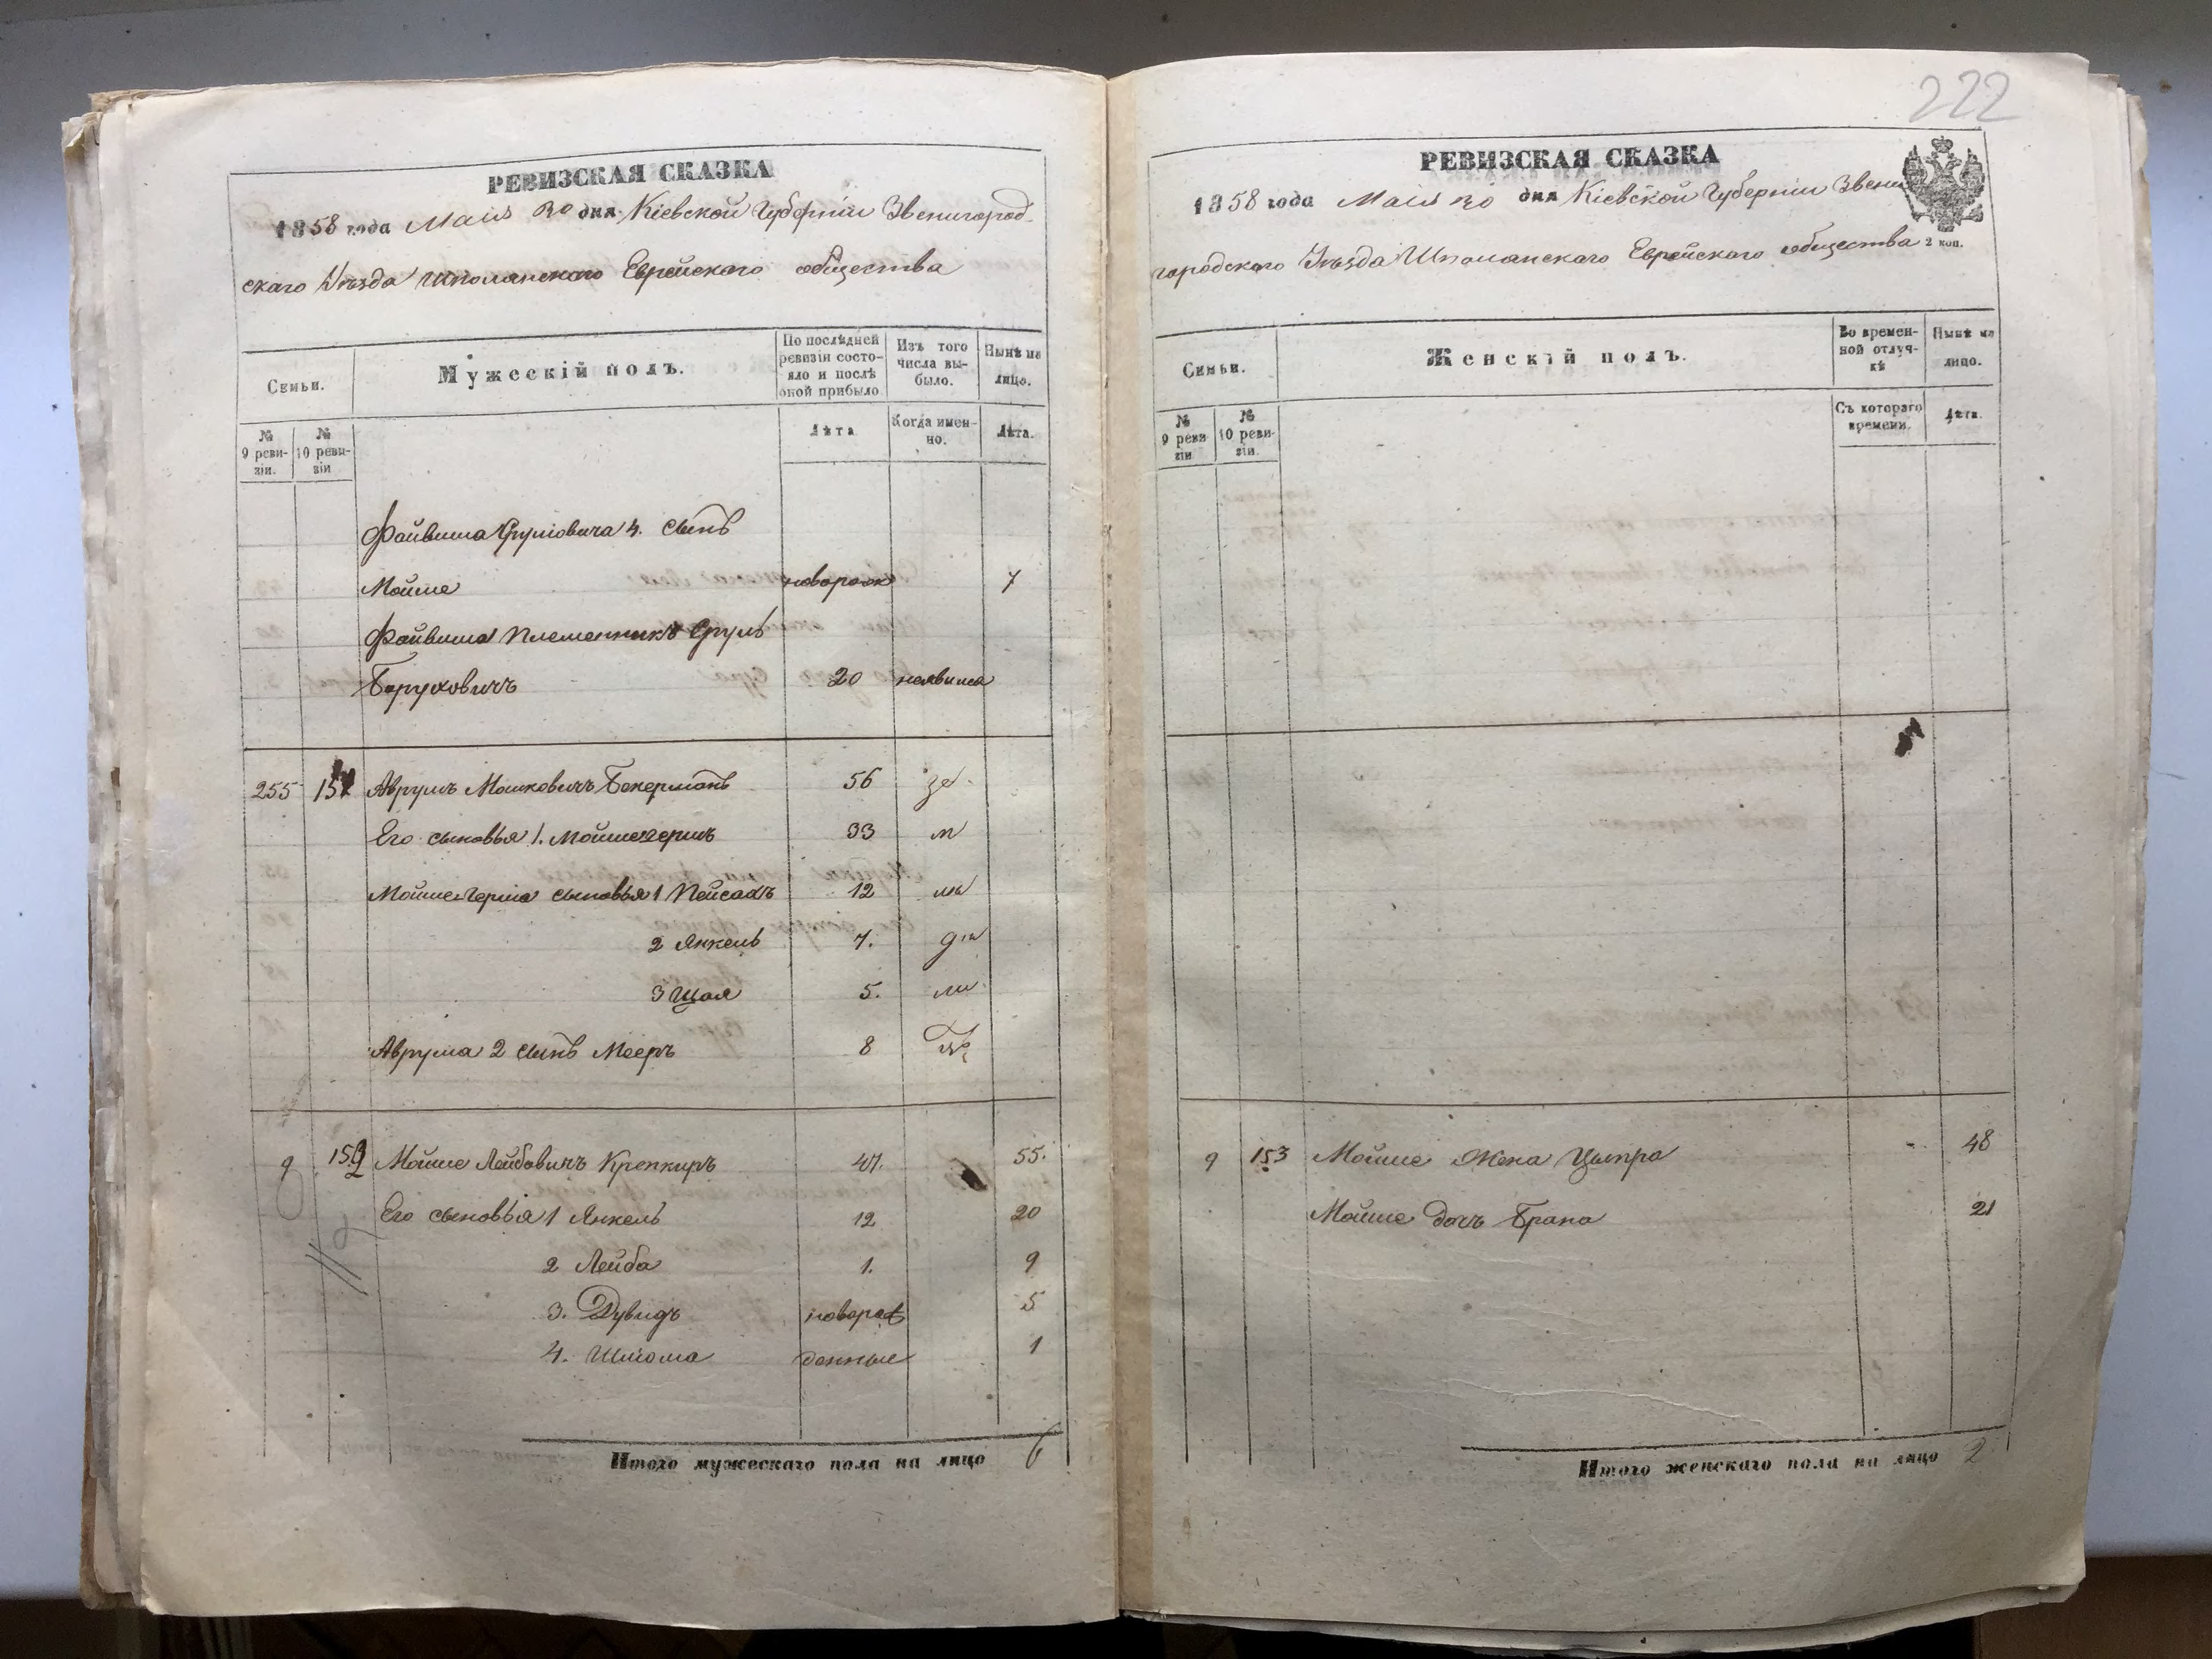 222
РЕВИЗСКАЯ СКАЗКА
1858 года Маія 20 дня Кіевской Губерніи Звенигород-
скаго Уѣзда Шполянскаго Еврейскаго общества
Семьи.
Мужескій полъ.
По послѣдней ревизіи состояло и послѣ оной прибыло
Изъ того числа выбыло.
Нынѣ на лицо.
№ 9 реви-зіи.
№ 10 реви-зіи
Лѣта
Когда имен-но.
Лѣта.
Файвиша Сруліовича 4. сынъ
Мойше новорож 7
Файвиша Племенникъ Сруль
Боруховичъ 20
255 Аврумъ Мошковичъ Бекерманъ 56
Его сыновья 1. Мойшегершъ 33
Мойшегерша сыновья 1 Пейсахъ 12
2 Янкель 7.
3 Шая 5.
Аврума 2 сынъ Мееръ 8
9 152 Мойше Лейбовичъ 47. 55.
Его сыновья 1 Янкель 12 20
2 Лейба 1. 9
3. Дувидъ новорож 5
4. Шліома денные 1
Итого мужескаго пола на лицо 6
РЕВИЗСКАЯ СКАЗКА
1858 года Маія 20 дня Кіевской Губерніи Звени
2 коп.
городскаго Уѣзда Шполянскаго Еврейскаго общества
Семьи.
Женскій полъ.
Во времен-ной отлуч-кѣ
Нынѣ на лицо.
№ 9 реви-зіи
№ 10 реви-зіи.
Съ котораго времени.
Лѣта.
9 153 Мойше Жена Цыпра - 48
Мойше дочъ Брана 21
Итого женскаго пола на лицо 2